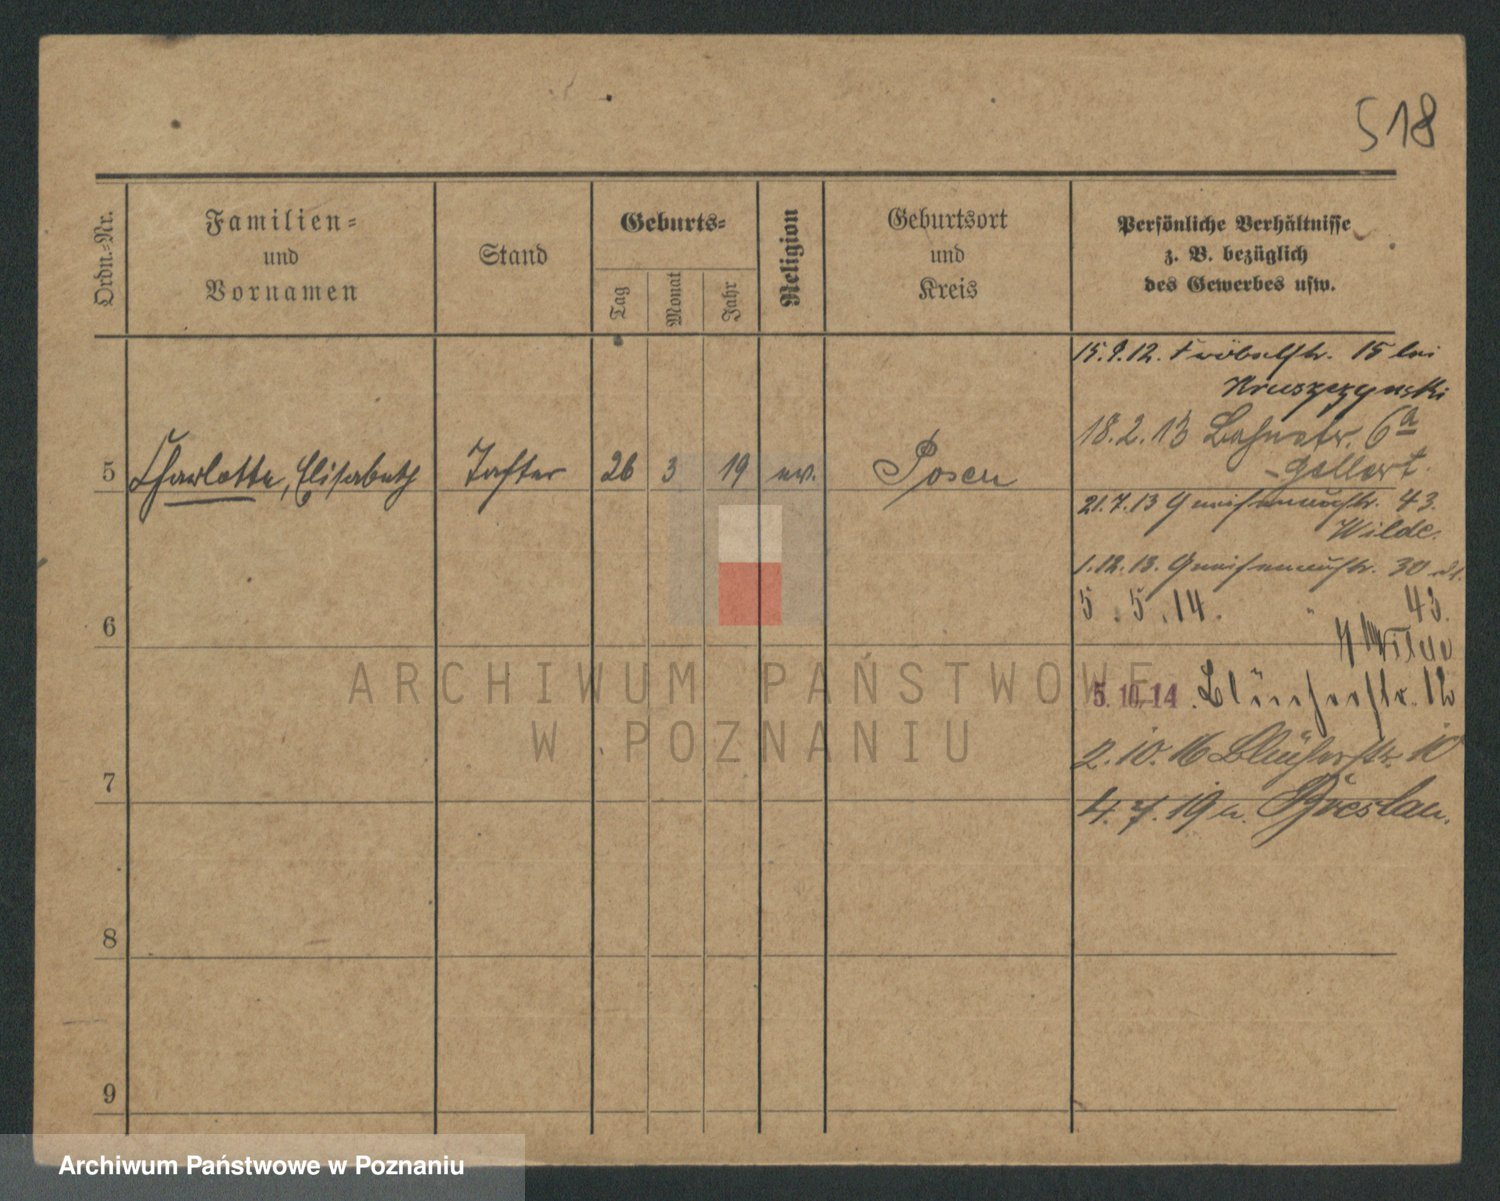 518
Ordn.-Nr.
Familien-
und
Vornamen
Stand
Geburts-
Tag
Monat
Jahr
Religion
Geburtsort
und
Kreis
Persönliche Verhältnisse
z. B. bezüglich
des Gewerbes usw.
15.9.12. Fröbelstr. 15 bei
Kruszczynski
18.2.13 Bahnstr. 6a
Gellert.
5 Charlotte, Elisabeth Tochter 26 3 19 ev. Posen
21.7.13 Gneisenaustr. 43.
Wilde.
1.12.13. Gneisenaustr. 30
5.5.14. " 43.
Wilde
6
5.10.14. Blücherstr. 12
2.10.16 Blücherstr. 10
7
4.7.19 n. Breslau.
8
9
ARCHIWUM PAŃSTWOWE
W POZNANIU
Archiwum Państwowe w Poznaniu